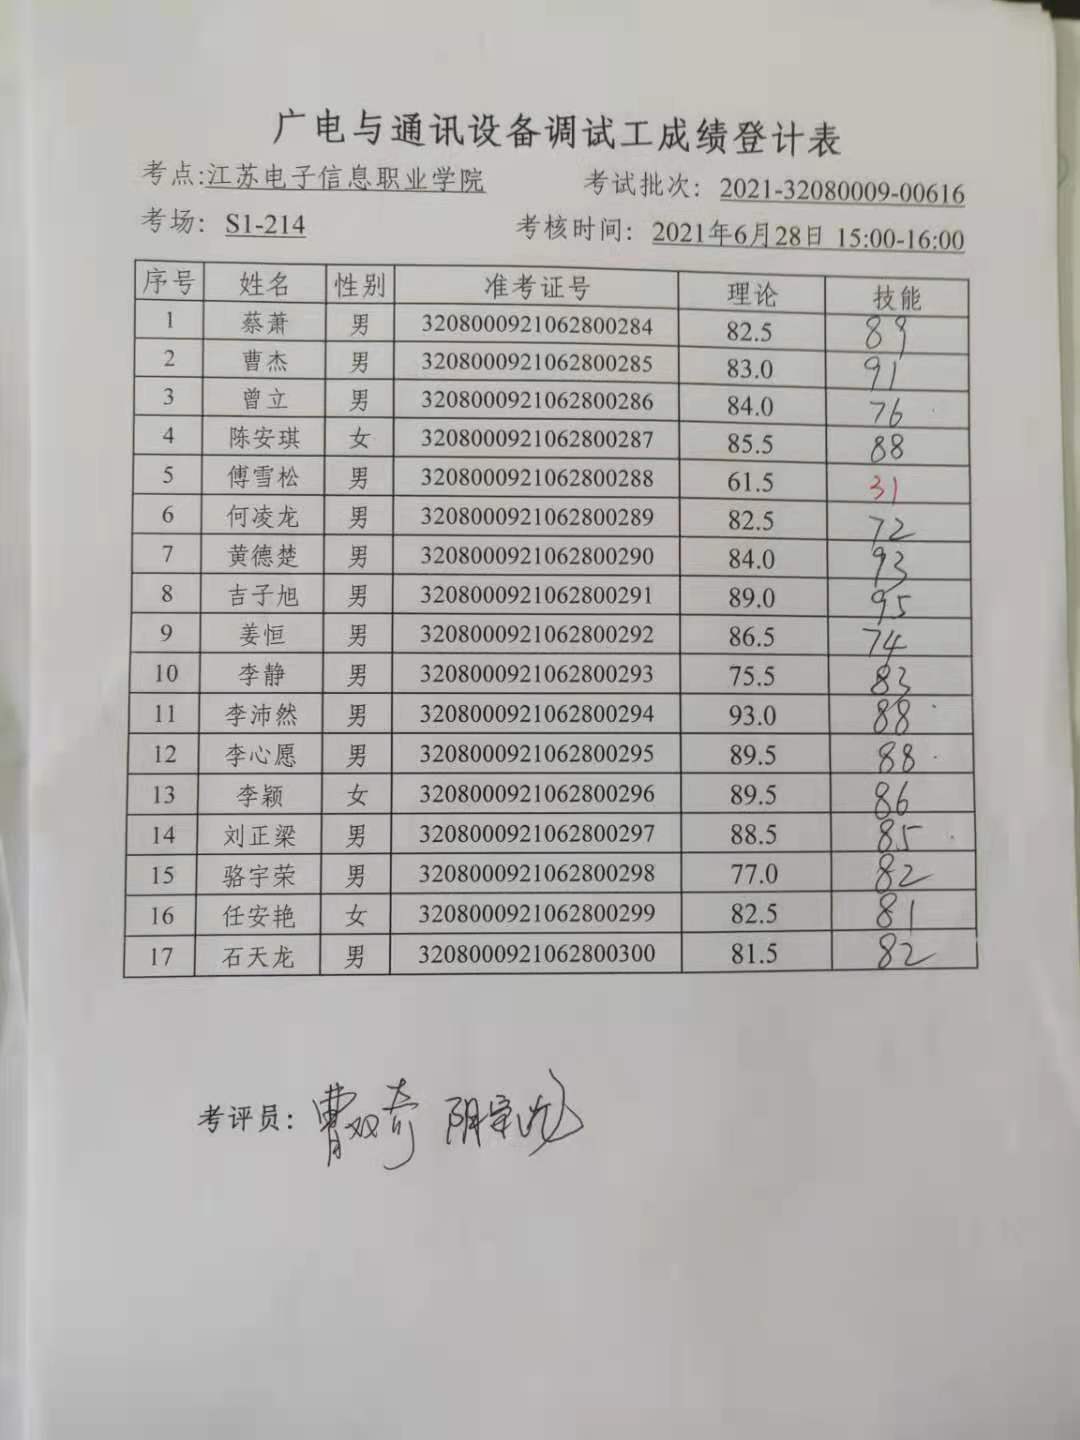 广电与通讯设备调试工成绩登计表
考点:江苏电子信息职业学院 考试批次: 2021-32080009-00616
考场: S1-214 考核时间: 2021年6月28日 15:00-16:00
序号 姓名 性别 准考证号 理论 技能
1 蔡萧 男 3208000921062800284 82.5 89
2 曹杰 男 3208000921062800285 83.0 91
3 曾立 男 3208000921062800286 84.0 76
4 陈安琪 女 3208000921062800287 85.5 88
5 傅雪松 男 3208000921062800288 61.5 31
6 何凌龙 男 3208000921062800289 82.5 72
7 黄德楚 男 3208000921062800290 84.0 93
8 吉子旭 男 3208000921062800291 89.0 95
9 姜恒 男 3208000921062800292 86.5 74
10 李静 男 3208000921062800293 75.5 83
11 李沛然 男 3208000921062800294 93.0 88
12 李心愿 男 3208000921062800295 89.5 88
13 李颖 女 3208000921062800296 89.5 86
14 刘正梁 男 3208000921062800297 88.5 85
15 骆宇荣 男 3208000921062800298 77.0 82
16 任安艳 女 3208000921062800299 82.5 81
17 石天龙 男 3208000921062800300 81.5 82
考评员: 曹双奇